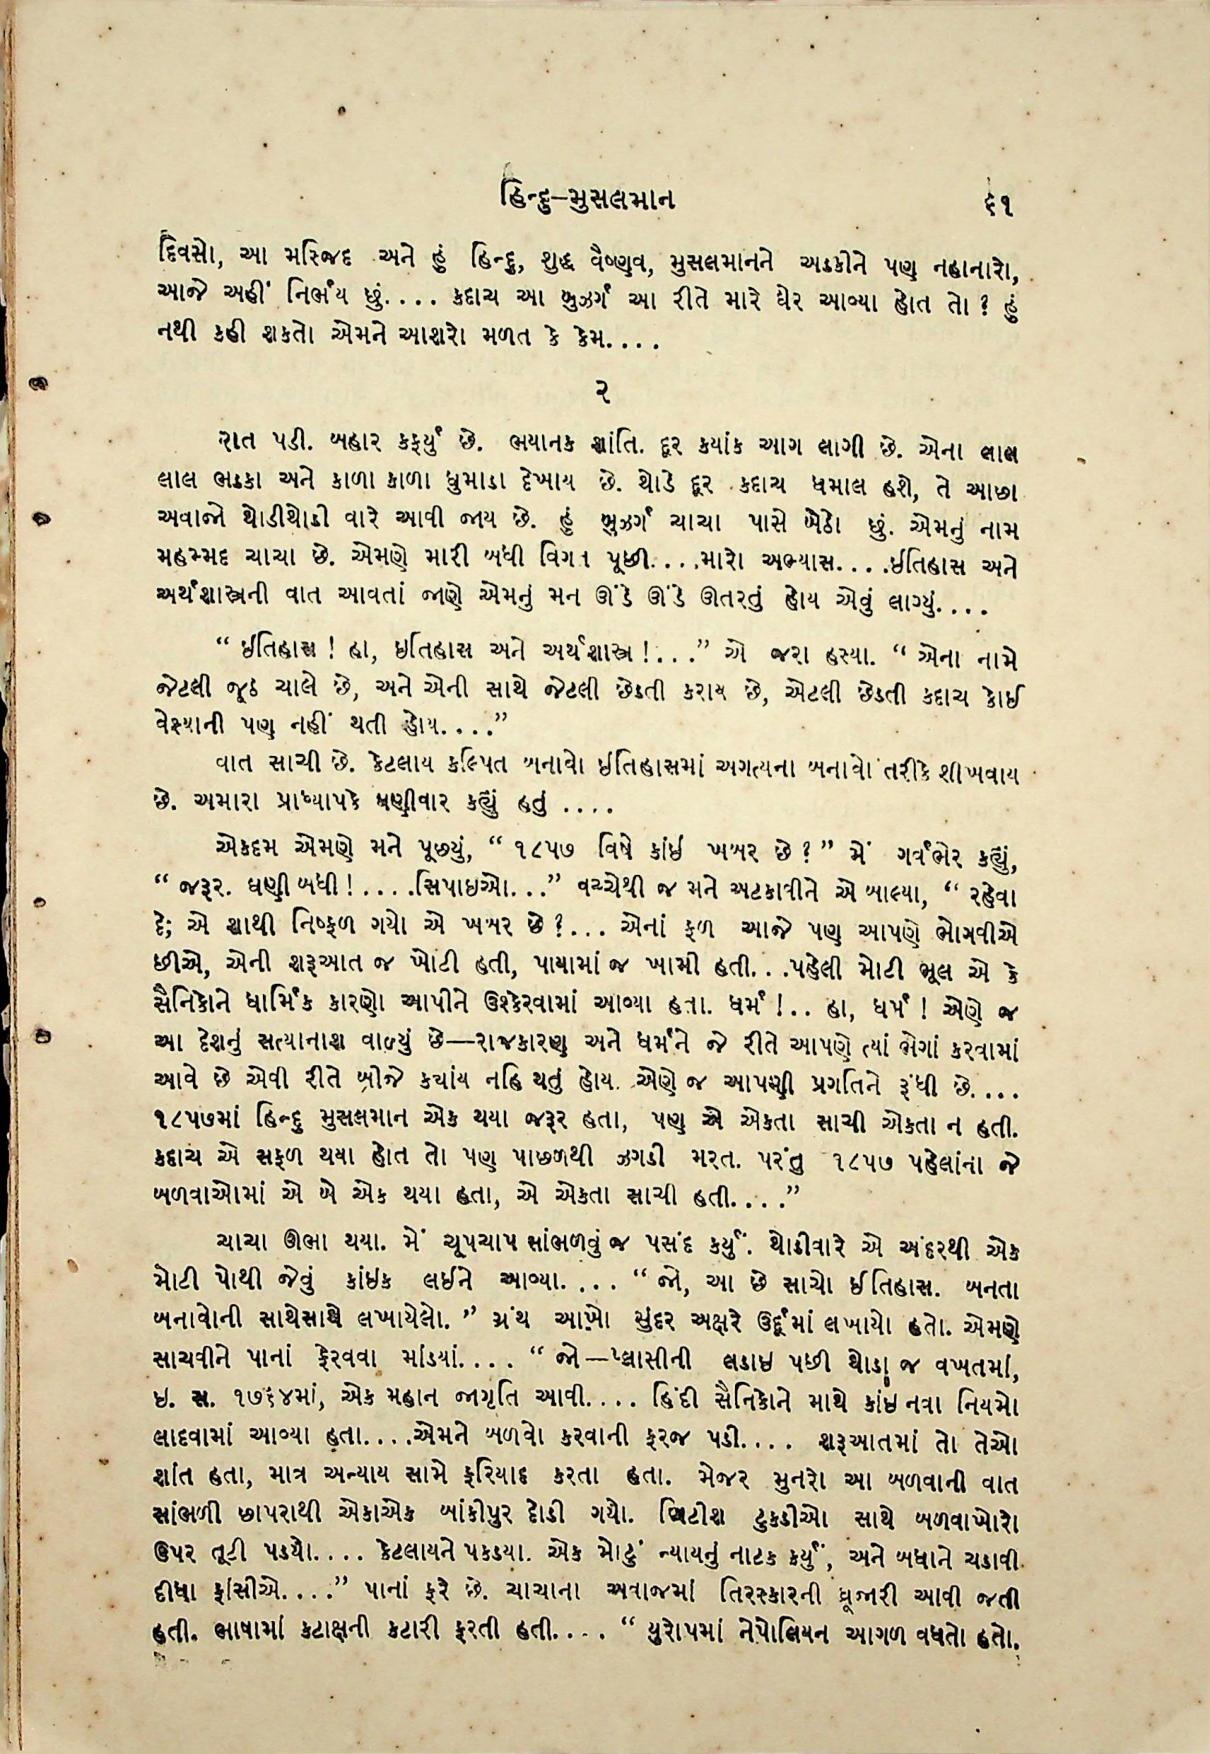 હિન્દુ–મુસલમાન ૬૧
દિવસો, આ મસ્જિદ અને હું હિન્દુ, શુદ્ધ વૈષ્ણવ, મુસલમાનને અડકીને પણ નહાનારો,
આજે અહીં નિર્ભય છું.... કદાચ આ બુઝર્ગ આ રીતે મારે ઘેર આવ્યા હોત તો ? હું
નથી કહી શકતો એમને આશરો મળત કે કેમ....
૨
રાત પડી. બહાર કર્ફ્યુ છે. ભયાનક શાંતિ. દૂર કયાંક આગ લાગી છે. એના લાલ
લાલ ભડકા અને કાળા કાળા ધુમાડા દેખાય છે. થોડે દૂર કદાચ ધમાલ હશે, તે આછા
અવાજો થોડીથોડી વારે આવી જાય છે. હું બુઝર્ગ ચાચા પાસે બેઠો છું. એમનું નામ
મહમ્મદ ચાચા છે. એમણે મારી બધી વિગત પૂછી....મારો અભ્યાસ....ઇતિહાસ અને
અર્થશાસ્ત્રની વાત આવતાં જાણે એમનું મન ઊંડે ઊંડે ઊતરતું હોય એવું લાગ્યું....
“ ઇતિહાસ ! હા, ઇતિહાસ અને અર્થશાસ્ત્ર !...” એ જરા હસ્યા. “ એના નામે
જેટલી જૂઠ ચાલે છે, અને એની સાથે જેટલી છેડતી કરાય છે, એટલી છેડતી કદાચ કોઈ
વેશ્યાની પણ નહીં થતી હોય....”
વાત સાચી છે. કેટલાય કલ્પિત બનાવો ઇતિહાસમાં અગત્યના બનાવો તરીકે શીખવાય
છે. અમારા પ્રાધ્યાપકે ઘણીવાર કહ્યું હતું ....
એકદમ એમણે મને પૂછ્યું, “ ૧૮૫૭ વિષે કાંઇ ખબર છે ? ” મેં ગર્વભેર કહ્યું,
“ જરૂર. ઘણી બધી !....સિપાઇઓ...” વચ્ચેથી જ મને અટકાવીને એ બોલ્યા, “ રહેવા
દે; એ શાથી નિષ્ફળ ગયો એ ખબર છે ?... એનાં ફળ આજે પણ આપણે ભોગવીએ
છીએ, એની શરૂઆત જ ખોટી હતી, પાયામાં જ ખામી હતી...પહેલી મોટી ભૂલ એ કે
સૈનિકોને ધાર્મિક કારણો આપીને ઉશ્કેરવામાં આવ્યા હતા. ધર્મ !.. હા, ધર્મ ! એણે જ
આ દેશનું સત્યાનાશ વાળ્યું છે—રાજકારણ અને ધર્મને જે રીતે આપણે ત્યાં ભેગાં કરવામાં
આવે છે એવી રીતે બીજે કયાંય નહિ થતું હોય. એણે જ આપણી પ્રગતિને રૂંધી છે....
૧૮૫૭માં હિન્દુ મુસલમાન એક થયા જરૂર હતા, પણ એ એકતા સાચી એકતા ન હતી.
કદાચ એ સફળ થયા હોત તો પણ પાછળથી ઝગડી મરત. પરંતુ ૧૮૫૭ પહેલાંના જે
બળવાઓમાં એ બે એક થયા હતા, એ એકતા સાચી હતી....”
ચાચા ઊભા થયા. મેં ચૂપચાપ સાંભળવું જ પસંદ કર્યું. થોડીવારે એ અંદરથી એક
મોટી પોથી જેવું કાંઇક લઇને આવ્યા.... “ જો, આ છે સાચો ઈતિહાસ. બનતા
બનાવોની સાથેસાથે લખાયેલો. ” ગ્રંથ આખો સુંદર અક્ષરે ઉર્દૂમાં લખાયો હતો. એમણે
સાચવીને પાનાં ફેરવવા માંડયાં.... “ જો—પ્લાસીની લડાઇ પછી થોડા જ વખતમાં,
ઇ. સ. ૧૭૬૪માં, એક મહાન જાગૃતિ આવી.... હિંદી સૈનિકોને માથે કાંઇ નવા નિયમો
લાદવામાં આવ્યા હતા....એમને બળવો કરવાની ફરજ પડી.... શરૂઆતમાં તો તેઓ
શાંત હતા, માત્ર અન્યાય સામે ફરિયાદ કરતા હતા. મેજર મુનરો આ બળવાની વાત
સાંભળી છાપરાથી એકાએક બાંકીપુર દોડી ગયો. બ્રિટીશ ટુકડીઓ સાથે બળવાખોરો
ઉપર તૂટી પડયો.... કેટલાયને પકડયા. એક મોટું ન્યાયનું નાટક કર્યું, અને બધાને ચડાવી
દીધા ફાંસીએ....” પાનાં ફરે છે. ચાચાના અવાજમાં તિરસ્કારની ધ્રૂજારી આવી જતી
હતી. ભાષામાં કટાક્ષની કટારી ફરતી હતી.... “ યુરોપમાં નેપોલિયન આગળ વધતો હતો.